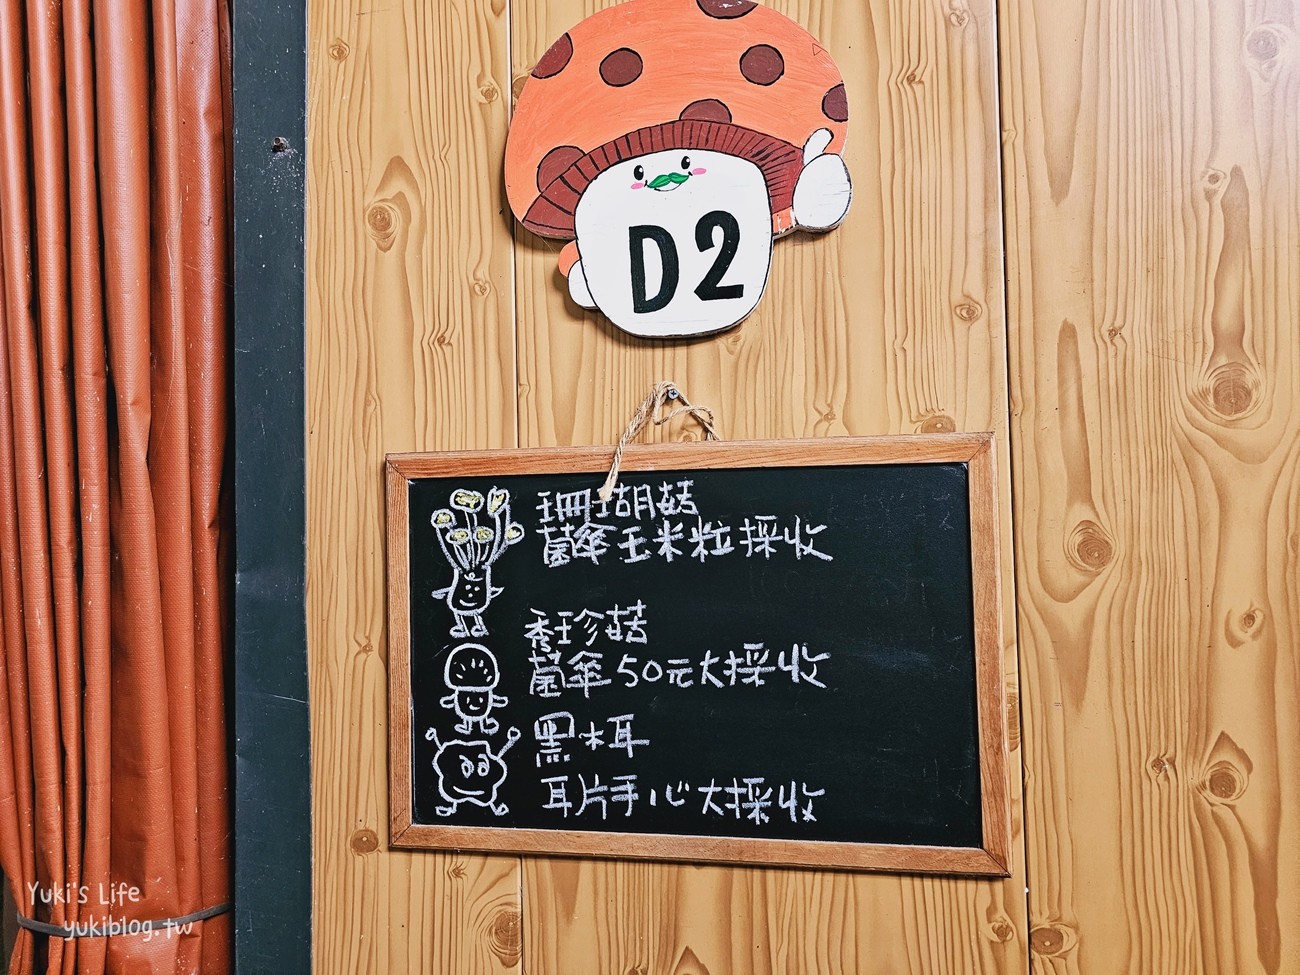 D2
珊瑚菇
菌傘玉米粒採收
秀珍菇
菌傘50元大採收
黑木耳
耳片手心大採收
Yuki's Life
yukiblog.tw